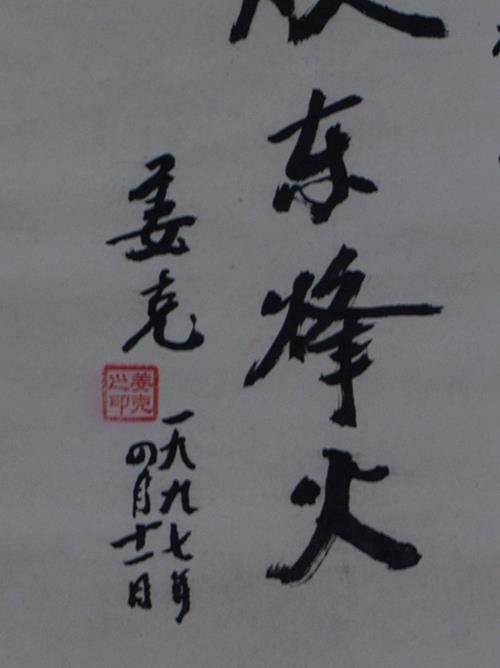 东烽火
姜克
姜克之印
一九九七年
四月十一日